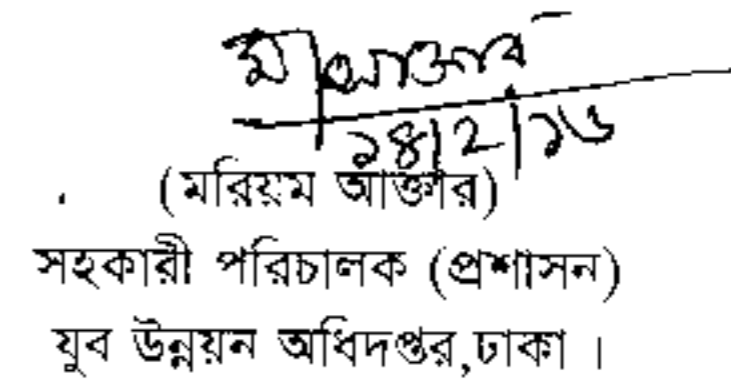 মাআক্তার
১৪|2|১৬
(মরিয়ম আক্তার)
সহকারী পরিচালক (প্রশাসন)
যুব উন্নয়ন অধিদপ্তর,ঢাকা ।